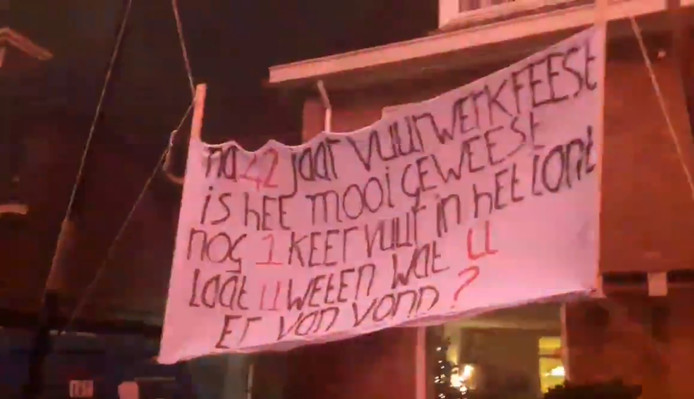 na 42 jaar vuurwerkfeest
is het mooi geweest
nog 1 keer vuur in het lont
laat u weten wat u
er van vond?